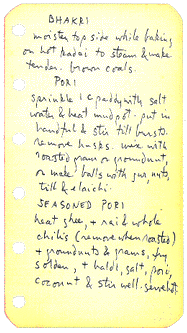 BHAKRI
moisten top side while baking
on hot kadai to steam & make
tender. brown coals.
PORI
sprinkle 1 c paddy with salt
water & heat in mudpot. put in
handful & stir till bursts.
remove husks. mix with
roasted gram or groundnut,
or make balls with gur, nuts,
till & elaichi.
SEASONED PORI
heat ghee, + rai & whole
chilis (remove when roasted)
+ groundnuts & grams, fry
golden, + haldi, salt, pori,
coconut & stir well. serve hot.